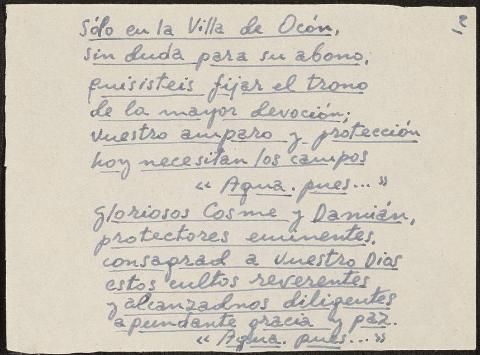 2
Sólo en la Villa de Ocón,
sin duda para su abono,
quisisteis fijar el trono
de la mayor devoción;
vuestro amparo y protección
hoy necesitan los campos
"Agua. pues..."
gloriosos Cosme y Damián,
protectores eminentes.
consagrad a vuestro Dios
estos cultos reverentes
y alcanzadnos diligentes
apundante gracia y paz.
"Agua. pues..."